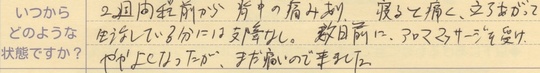 いつから
どのような
状態ですか?
2週間程前から 背中の痛みあり、 寝ると痛く、立ちあがって
生活している分には支障なし。 数日前に、アロママッサージを受け
ややよくなったが、まだ痛いので来ました